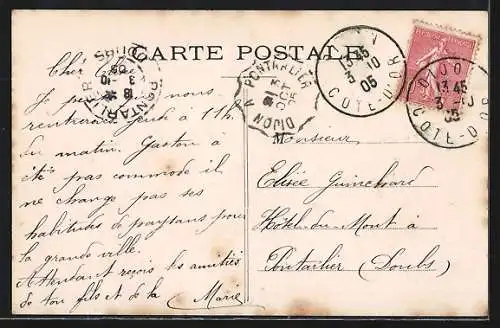 CARTE POSTALE
Cher
Je pense nous
rentrerons jeudi à 11h
du matin. Gaston a
été pas commode il
ne change pas ses
habitudes de paysans pour
la grande ville.
Attendant reçois les amitiés
de ton fils et de la Marie
PONTARLIER
18 3 -10 05
PONTARLIER A DIJON
3 OCT 05
13 45
3 -10
05
COTE-D'OR
13 45
05
COTE-D'OR
M
Monsieur
Elisée Guinchard
Hôtel du Mont à
Pontarlier (Doubs)